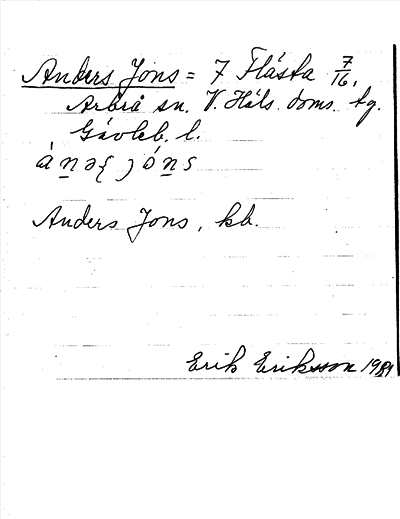 Anders Jons = 7 Flästa 7/16,
Arbrå sn. V. Häls. doms. tg.
Gävleb. l.
Anders Jons, kb.
Erik Eriksson 1989